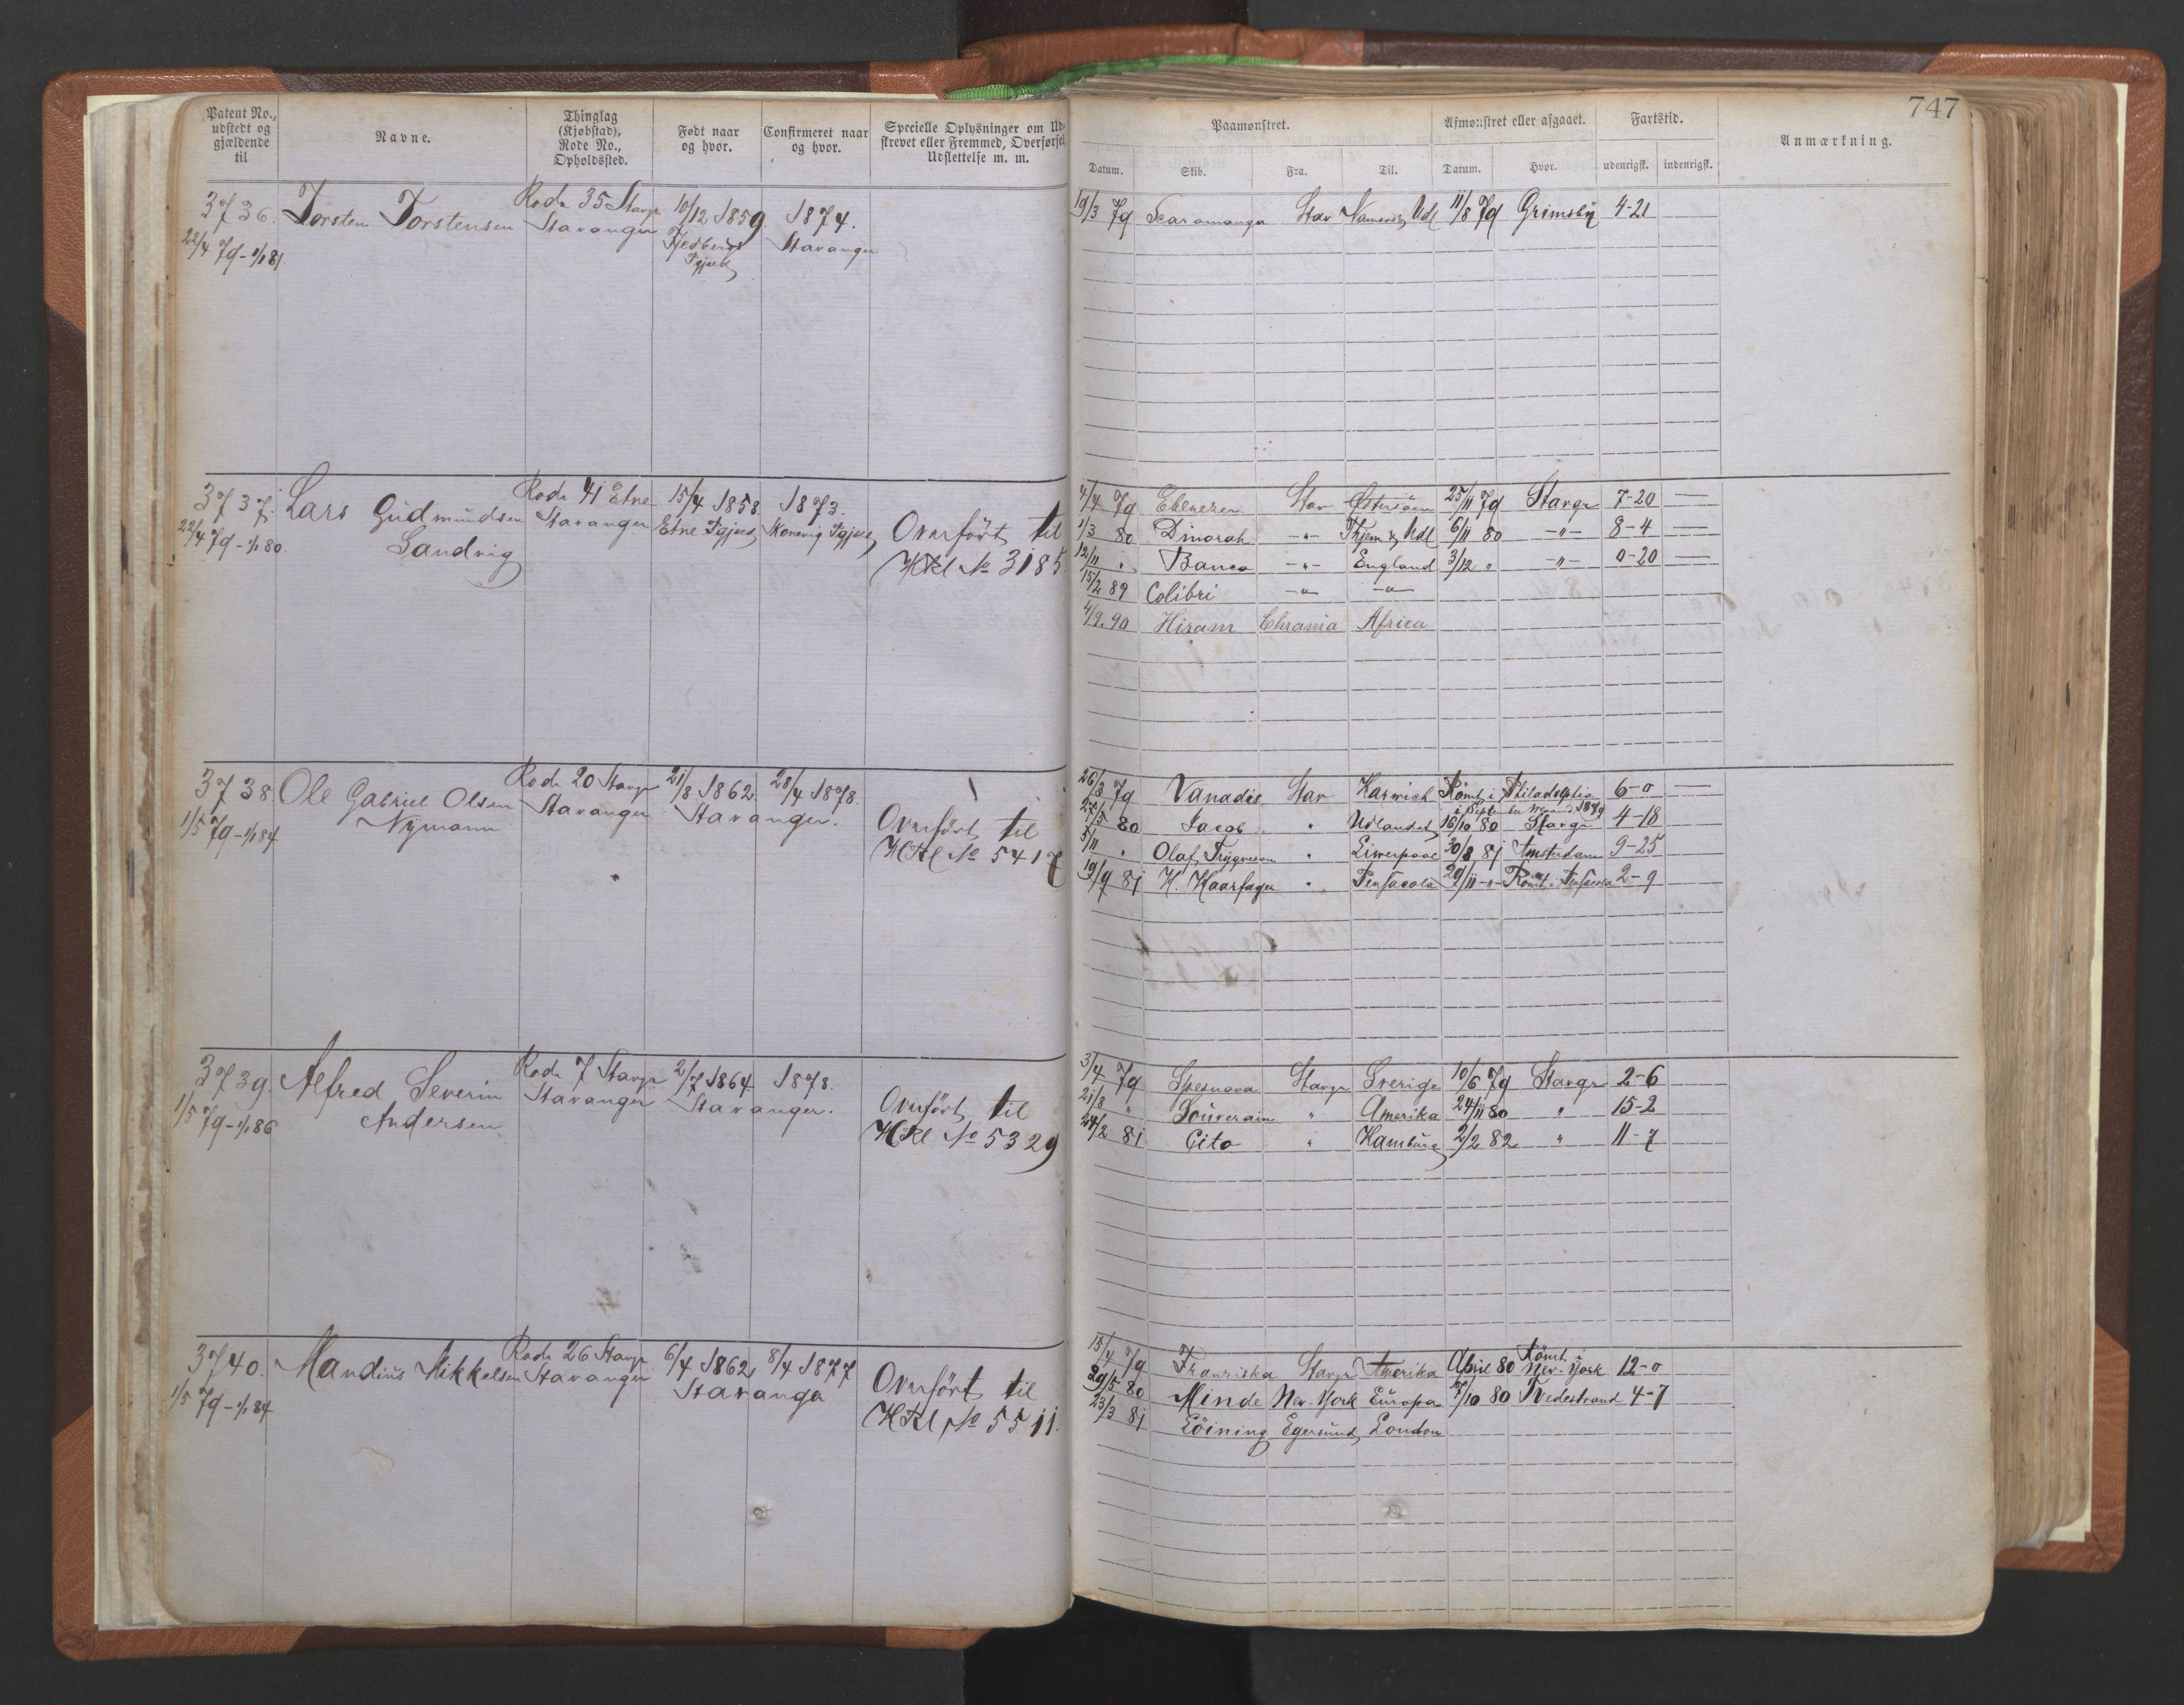 747
Patent No., udstedt og gjældende til
Navne.
Thinglag (Kjøbstad), Rode No., Opholdssted.
Født naar og hvor.
Confirmeret naar og hvor.
Specielle Oplysninger om Udskrevet eller Fremmed, Overførsel, Udslettelse m. m.
Paamønstret.
Afmønstret eller afgaaet.
Fartstid.
Anmærkning.
Datum. Skib. Fra. Til. Datum. Hvor. udenrigsk. indenrigsk.
3736. Torsten Torstensen Rode 35 Stavgr 10/12 1859 1874.
22/4 79 - 1/1 81 Stavanger Stavanger
19/3 79 Scaramanga Stav Namsos & Udl 11/8 79 Grimsby 4-21
3737. Lars Gudmundsen Rode 41 Etne 15/4 1858 1873.
22/4 79 - 1/1 80. Sandvig Stavanger Etne Pgjæld Skonevig Pgjæld Overført til
HRl No 3185
4/4 79 Ebenezer Stav Østersøen 25/11 79 Stavgr 7-20 —
1/3 80 Dinorah -"- Thjem & Udl 6/11 80 -"- 8-4 —
12/11 " Banco -"- England 3/12 " -"- 0-20 —
15/2 89 Colibri -"- -"-
4/9. 90 Hiram Chrania Africa
3738. Ole Gabriel Olsen Rode 20 Stavgr 21/8 1862 28/4 1878.
1/5 79 - 1/1 84 Nymann Stavanger Stavanger. Overført til
HRl No 5417
26/3 79 Vanadis Stav Harwich Rømt i Philadelphia 6-0 —
i September maaned 1879
27/5 80 Jacob " Udlandet 16/10 80 Stavgr 4-18
5/11 " Olaf Trygveson " Liverpool 30/8 81 Amsterdam 9-25
19/9 81 H. Haarfager " Pensacola 29/11 -"- Rømt i Pensacola 2-9
3739. Alfred Severin Rode 7 Stavgr 2/7 1864 1878.
1/5 79 - 1/1 86 Andersen Stavanger Stavanger. Overført til
HRl No 5329
3/4 79 Spesnova Stavgr Sverige 10/6 79 Stavgr 2-6
21/8 " Souverain " Amerika 24/11 80 " 15-2
24/2 81 Cito " Hamburg 2/2 82 " 11-7
3740. Mandius Mikkelsen Rode 26 Stavgr 6/4 1862 8/4 1877
1/5 79 - 1/1 84 Stavanger Stavanger Overført til
HRl No 5511.
15/4 79 Franziska Stavgr Amerika April 80 Rømt New-York 12-0
29/5 80 Minde New-York Europa 7/10 80 Tvedestrand 4-7
23/3 81 Löining Egersund London